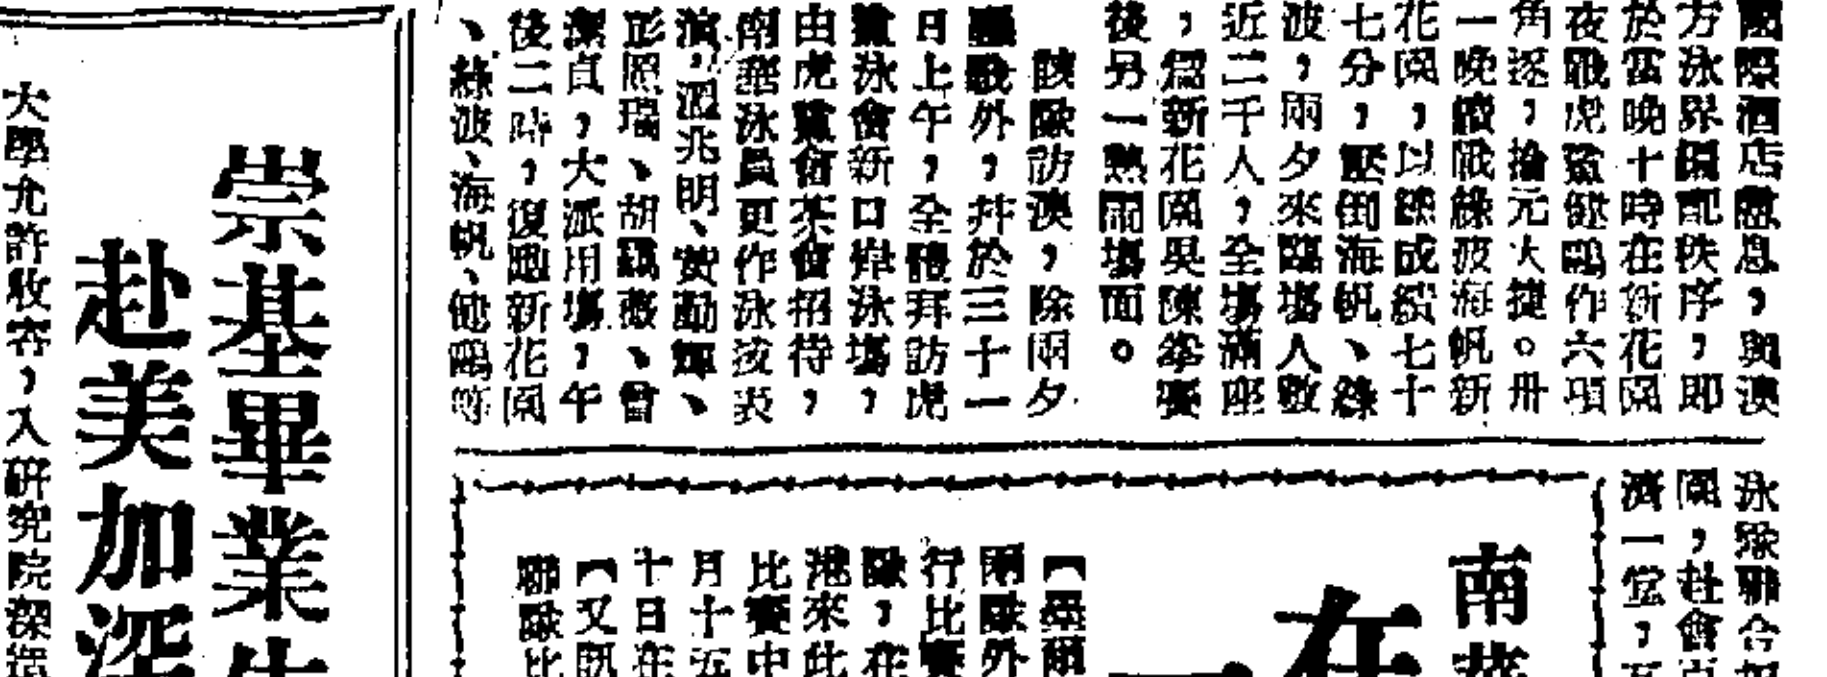 國際酒店憩息，與澳
方泳界圍配秩序，即
於當晚十時在新花園
夜戰虎鯊健鷗作六項
角逐，搶元大捷。卅
一晚續戰綠波海帆新
花園，以總成績七十
七分，壓倒海帆、綠
波，兩夕來臨塲人數
近二千人，全塲滿座
，爲新花園吳陳拳賽
後另一熱鬧塲面。
該隊訪澳，除兩夕
戰外，幷於三十一
日上午，全體拜訪虎
鯊泳會新口岸泳塲，
由虎鯊會茶會招待，
南華泳員更作泳術表
演，溫兆明、黃勳輝、
彭照瑞、胡 薇、曾
潔貞，大派用塲，午
後二時，復跑新花園
、綠波、海帆、健鷗等
泳隊聯合
園，赴會
濟一堂，
南華
在
一
兩隊外
行比賽
隊，在
港來此
比賽中
月十五
十日在
【又訊
聯隊比
崇基畢業生
赴美加深
大學允許收容，入研究院深造